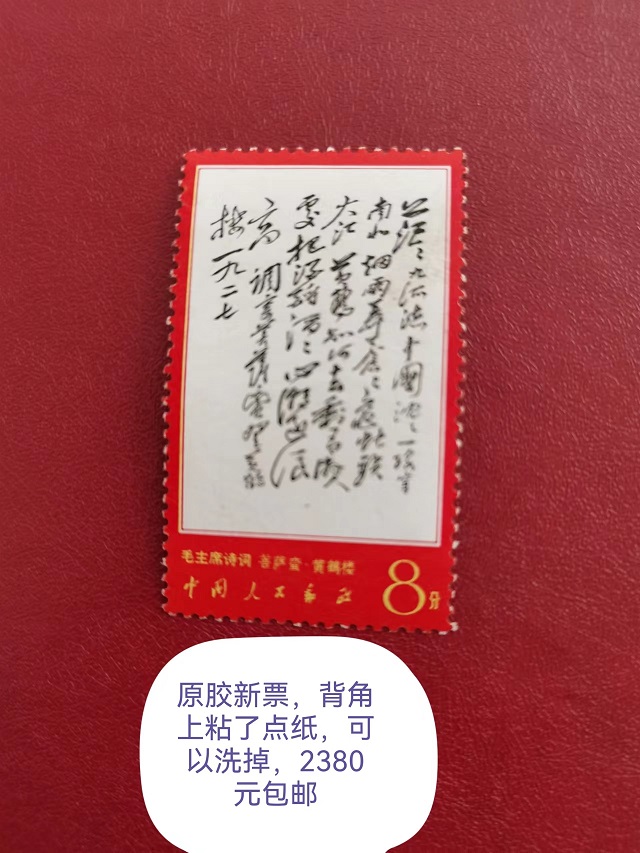 茫茫九派流中國沉沉一線穿
南北烟雨莽苍苍龜蛇鎖
大江黄鶴知何去剩有遊人
處把酒酹滔滔心潮逐浪
高 調寄菩薩蠻登黄鶴
樓一九二七
毛主席诗词 菩萨蛮·黄鹤楼
中国人民邮政 8分
原胶新票，背角
上粘了点纸，可
以洗掉，2380
元包邮